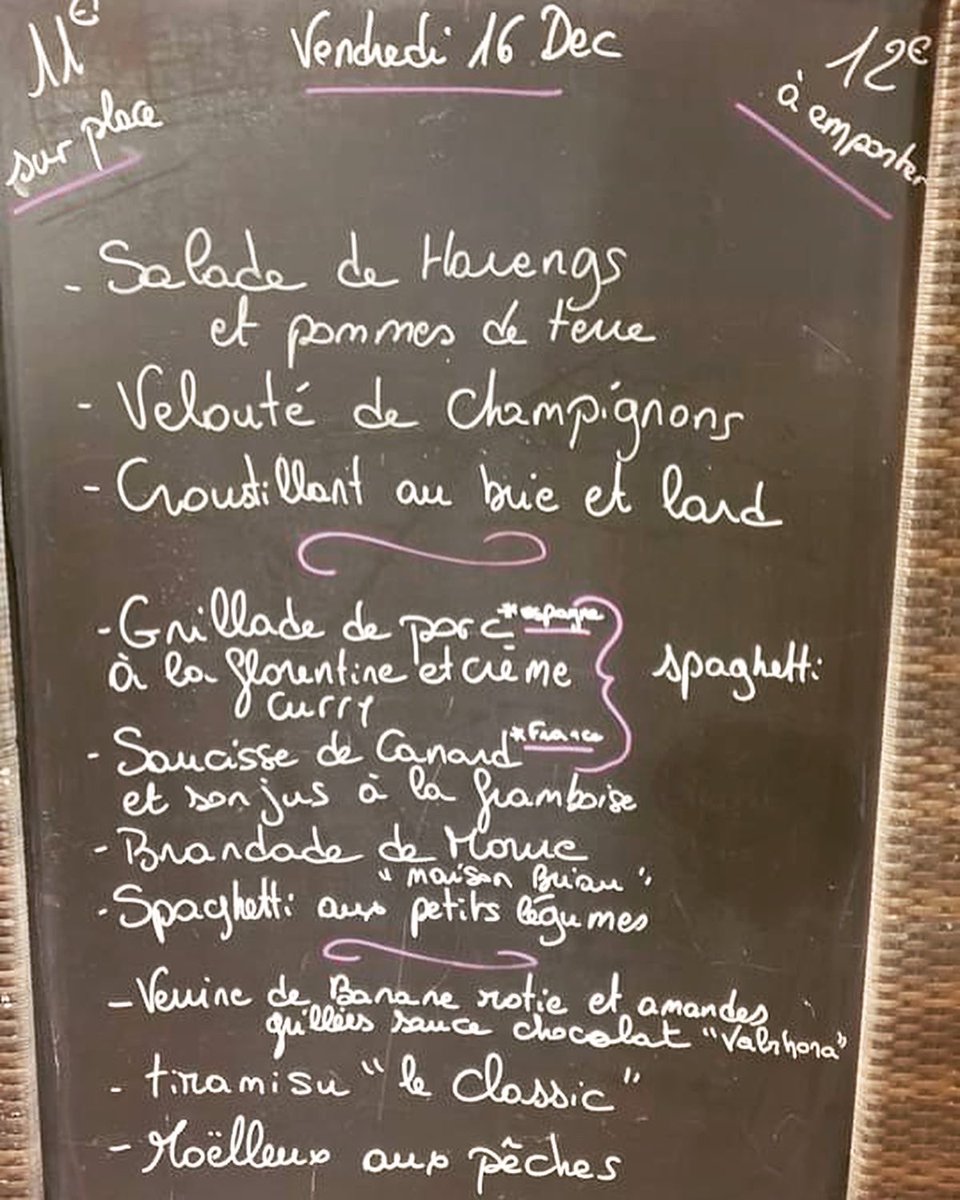 11€
Vendredi 16 Dec
12€
sur place
à emporter
- Salade de Harengs
et pommes de terre
- Velouté de Champignons
- Croustillant au brie et lard
- Grillade de porc *espagne
à la florentine et crème
curry
spaghetti
- Saucisse de Canard *France
et son jus à la framboise
- Brandade de Morue
"maison Briau"
- Spaghetti aux petits légumes
- Verrine de Banane rotie et amandes
grillées sauce chocolat "Valrhona"
- tiramisu "le classic"
- Moëlleux aux pêches